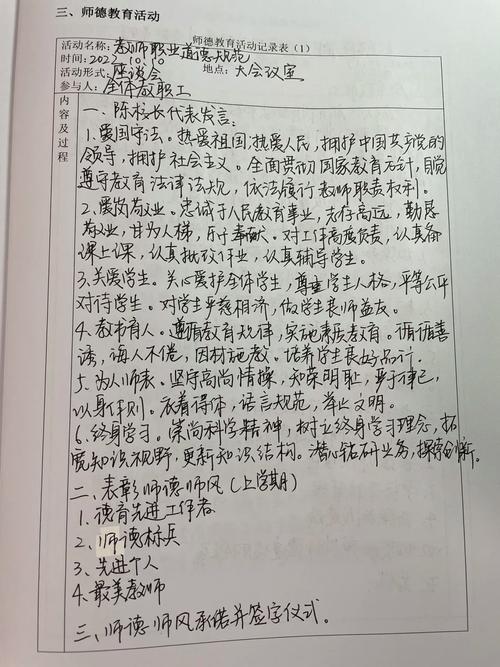 三、师德教育活动
师德教育活动记录表（1）
活动名称：教师职业道德规范
时间：2022.10.10
活动形式：座谈会 地点：大会议室
参与人：全体教职工
内容及过程
一、陈校长代表发言：
1.爱国守法。热爱祖国,热爱人民，拥护中国共产党的
领导，拥护社会主义。全面贯彻国家教育方针，自觉
遵守教育法律法规，依法履行教师职责权利。
2.爱岗敬业。忠诚于人民教育事业，志存高远，勤恳
敬业，甘为人梯，乐于奉献。对工作高度负责，认真备
课上课，认真批改作业，认真辅导学生。
3.关爱学生。关心爱护全体学生，尊重学生人格，平等公平
对待学生。对学生严慈相济，做学生良师益友。
4.教书育人。遵循教育规律，实施素质教育。循循善
诱，诲人不倦，因材施教。培养学生良好品行.
5.为人师表。坚守高尚情操，知荣明耻，严于律己，
以身作则。衣着得体，语言规范，举止文明。
6.终身学习。崇尚科学精神，树立终身学习理念，拓
宽知识视野，更新知识结构。潜心钻研业务，探索创新。
二、表彰师德师风（上学期）
1.德育先进工作者
2.师德标兵
3.先进个人
4.最美教师
三、师德师风承诺并签字仪式。